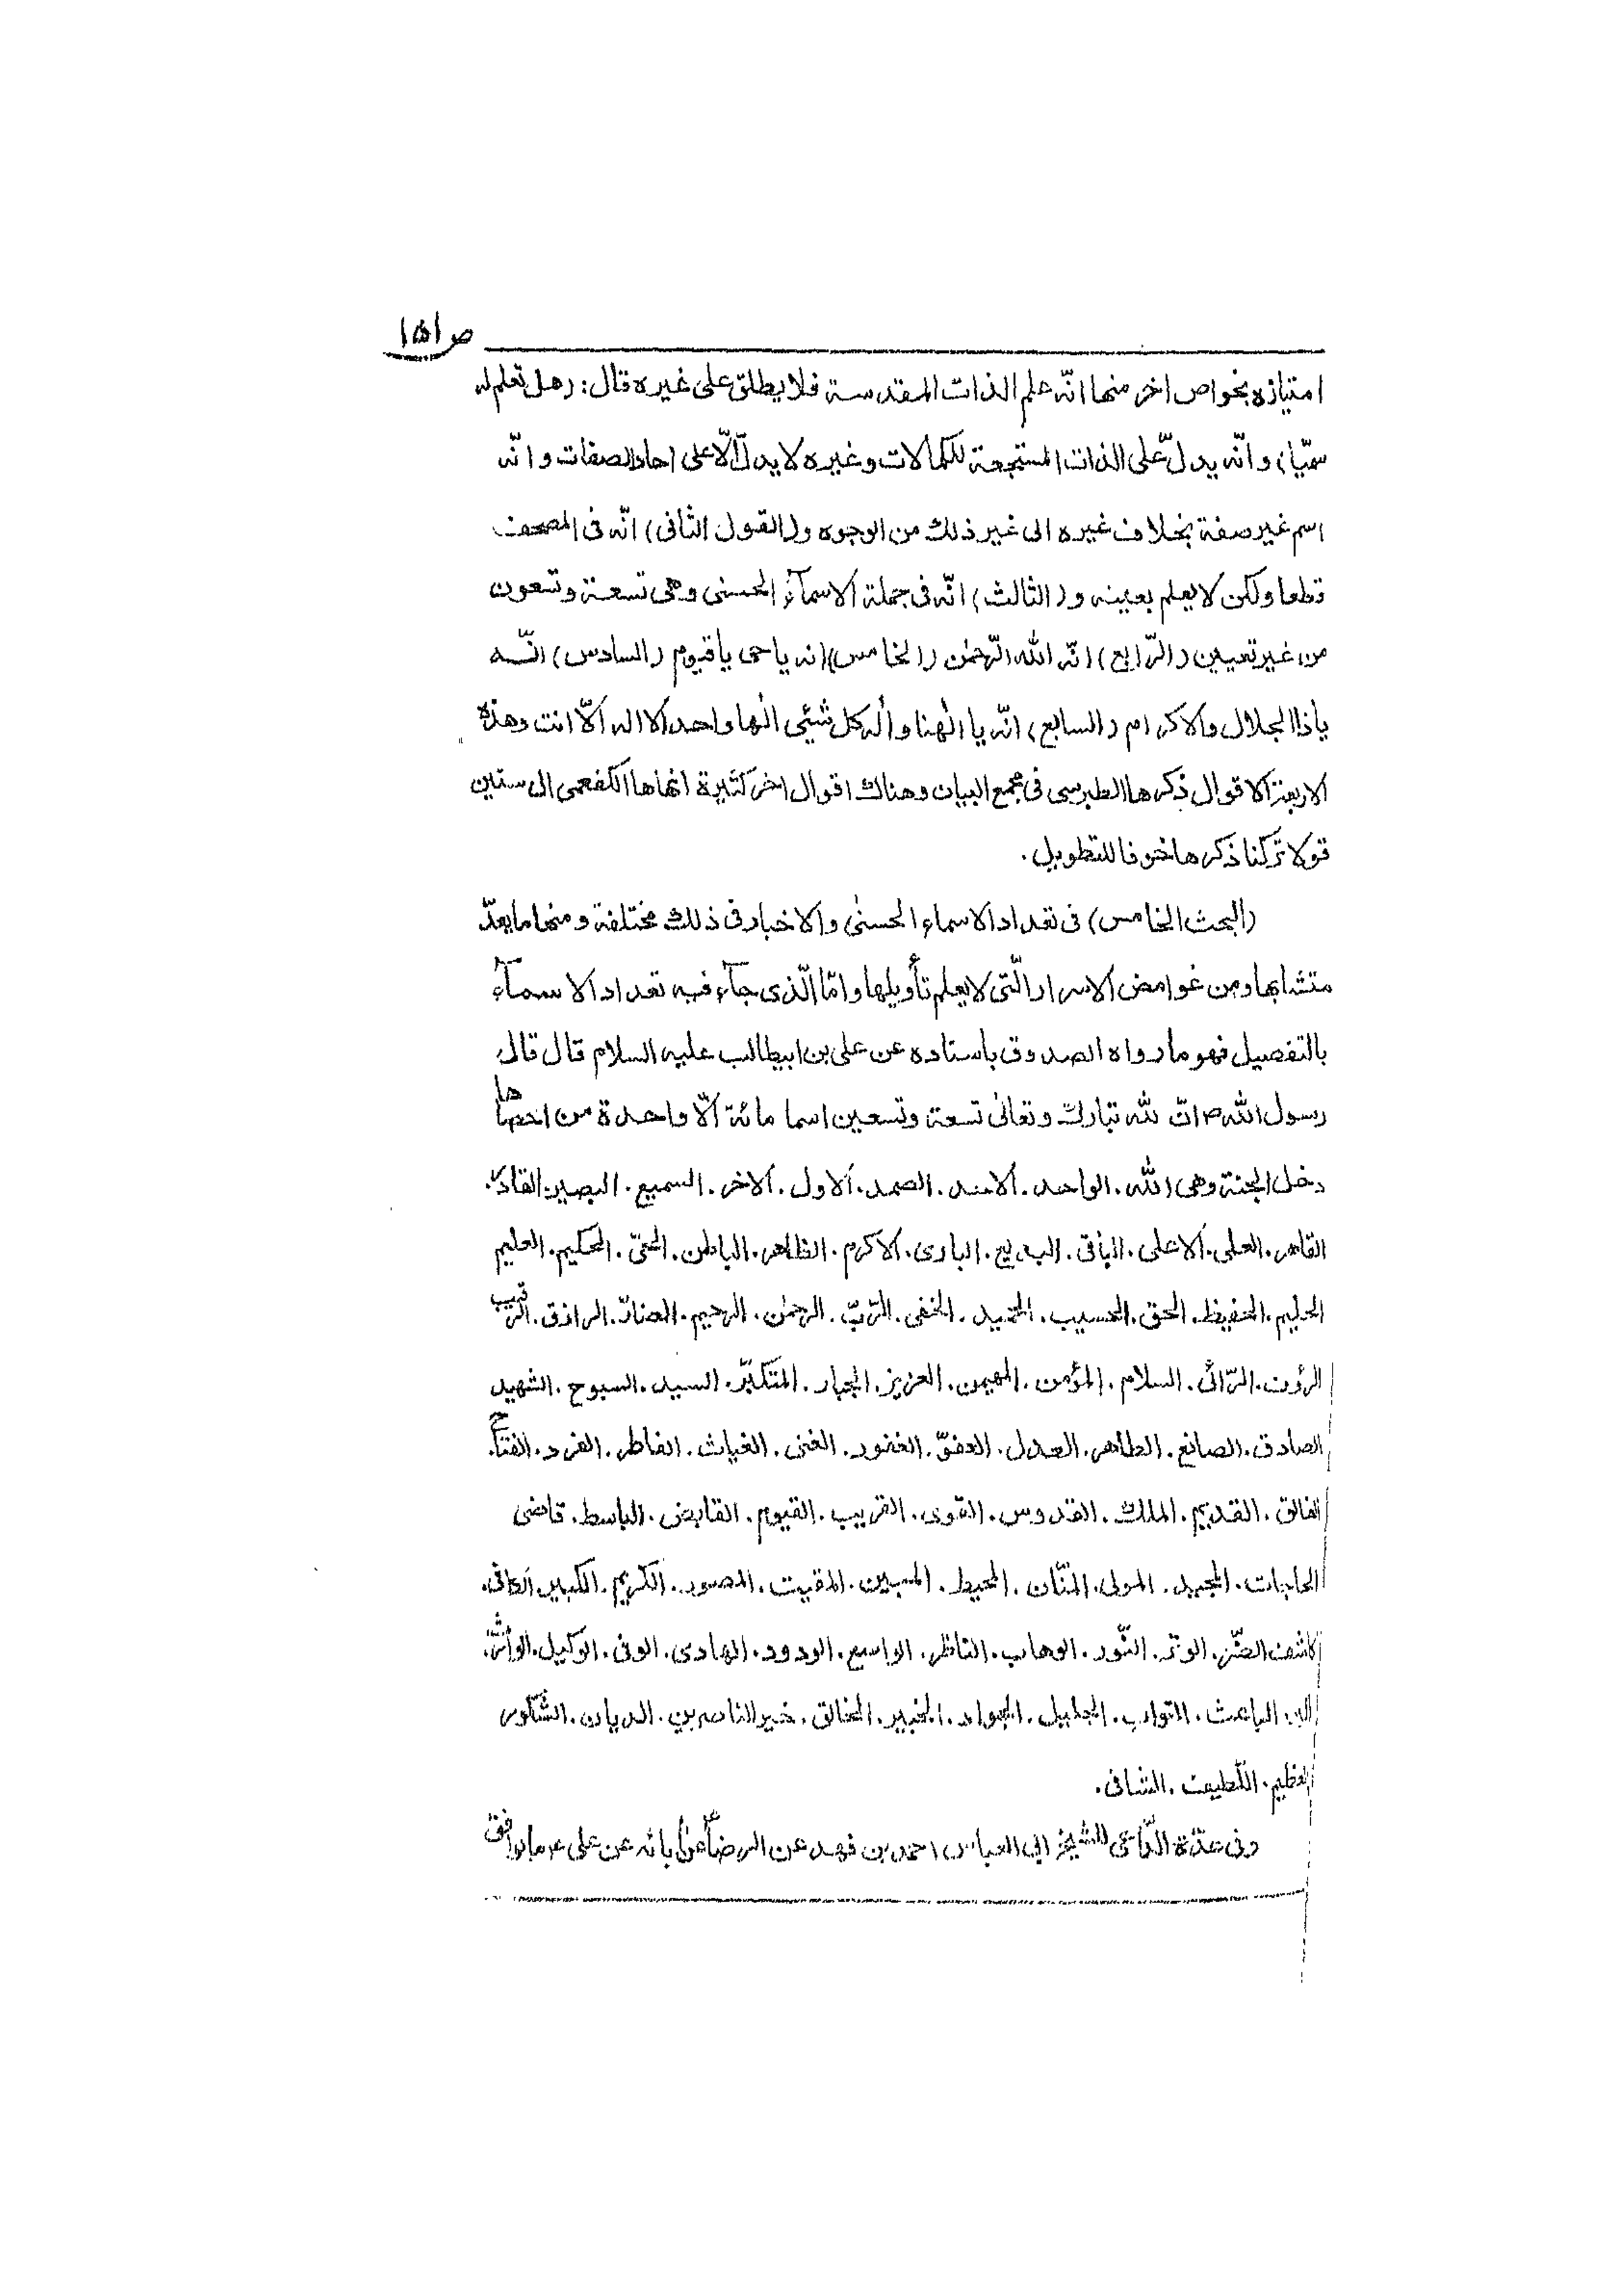 ص ١٥١
امتيازه بخواص اخر منها انّه علم الذات المقدسة فلا يطلق على غيره قال: (هل تعلم له
سميّا) وانّه يدلّ على الذات المستجمعة للكمالات وغيره لا يدلّ الّا على احاد الصفات وانّه
اسم غير صفة بخلاف غيره الى غير ذلك من الوجوه و(القول الثانى) انّه فى المصحف
قطعا ولكن لا يعلم بعينه و(الثالث) انّه فى جملة الاسمآء الحسنى وهى تسعة وتسعون
من غير تعيين (الرّابع) انّه الله الرّحمٰن (الخامس) انه ياحى ياقيوم (السادس) انّه
ياذا الجلال والاكرام (السابع) انّه يا الٰهنا واله كل شيئى الٰها واحدا لا اله الّا انت وهذه
الاربعة الاقوال ذكرها الطبرسى فى مجمع البيان وهناك اقوال اخر كثيرة انهاها الكفعمى الى ستين
قولا تركنا ذكرها خوفا للتطويل.
(البحث الخامس) فى تعداد الاسماء الحسنىٰ والاخبار فى ذلك مختلفة ومنها ما يعدّ
متشابها ومن غوامض الاسرار الّتى لا يعلم تأويلها وامّا الّذى جآء فيه تعداد الاسمآء
بالتفصيل فهو ما رواه الصدوق باسناده عن على بن ابيطالب عليه السلام قال قال
رسول الله ص انّ لله تبارك وتعالىٰ تسعة وتسعين اسما مائة الّا واحدة من احصاها
دخل الجنة وهى الله. الواحد. الاحد. الصمد. الاول. الاخر. السميع. البصير. القادر.
القاهر. العلى. الاعلى. الباقى. البديع. البارى. الاكرم. الظاهر. الباطن. الحىّ. الحكيم. العليم
الحليم. الحفيظ. الحق. الحسيب. الحميد. الخفى. الرّبّ. الرحمٰن. الرحيم. الرازق. الرقيب
الرؤف. الرّائى. السلام. المؤمن. المهيمن. العزيز. الجبار. المتكبّر. السيد. السبوح. الشهيد
الصادق. الصانع. الطاهر. العدل. العفوّ. الغفور. الغنى. الغياث. الفاطر. الفرد. الفتاح.
الفالق. القديم. الملك. القدوس. القوى. القريب. القيوم. القابض. الباسط. قاضى
الحاجات. المجيد. المولى. المنّان. المحيط. المبين. المقيت. المصور. الكريم. الكبير. الكافى.
كاشف الضّر. الوتر. النّور. الوهاب. الناظر. الواسع. الودود. الهادى. الوفى. الوكيل. الوارث.
البر. الباعث. التواب. الجليل. الجواد. الخبير. الخالق. خير الناصرين. الديان. الشّكور
العظيم. اللّطيف. الشافى.
وفى عدّة الدّاعى للشيخ ابي العباس احمد بن فهد عن الرضا ع عن ابائه عن على ع ما يوافق